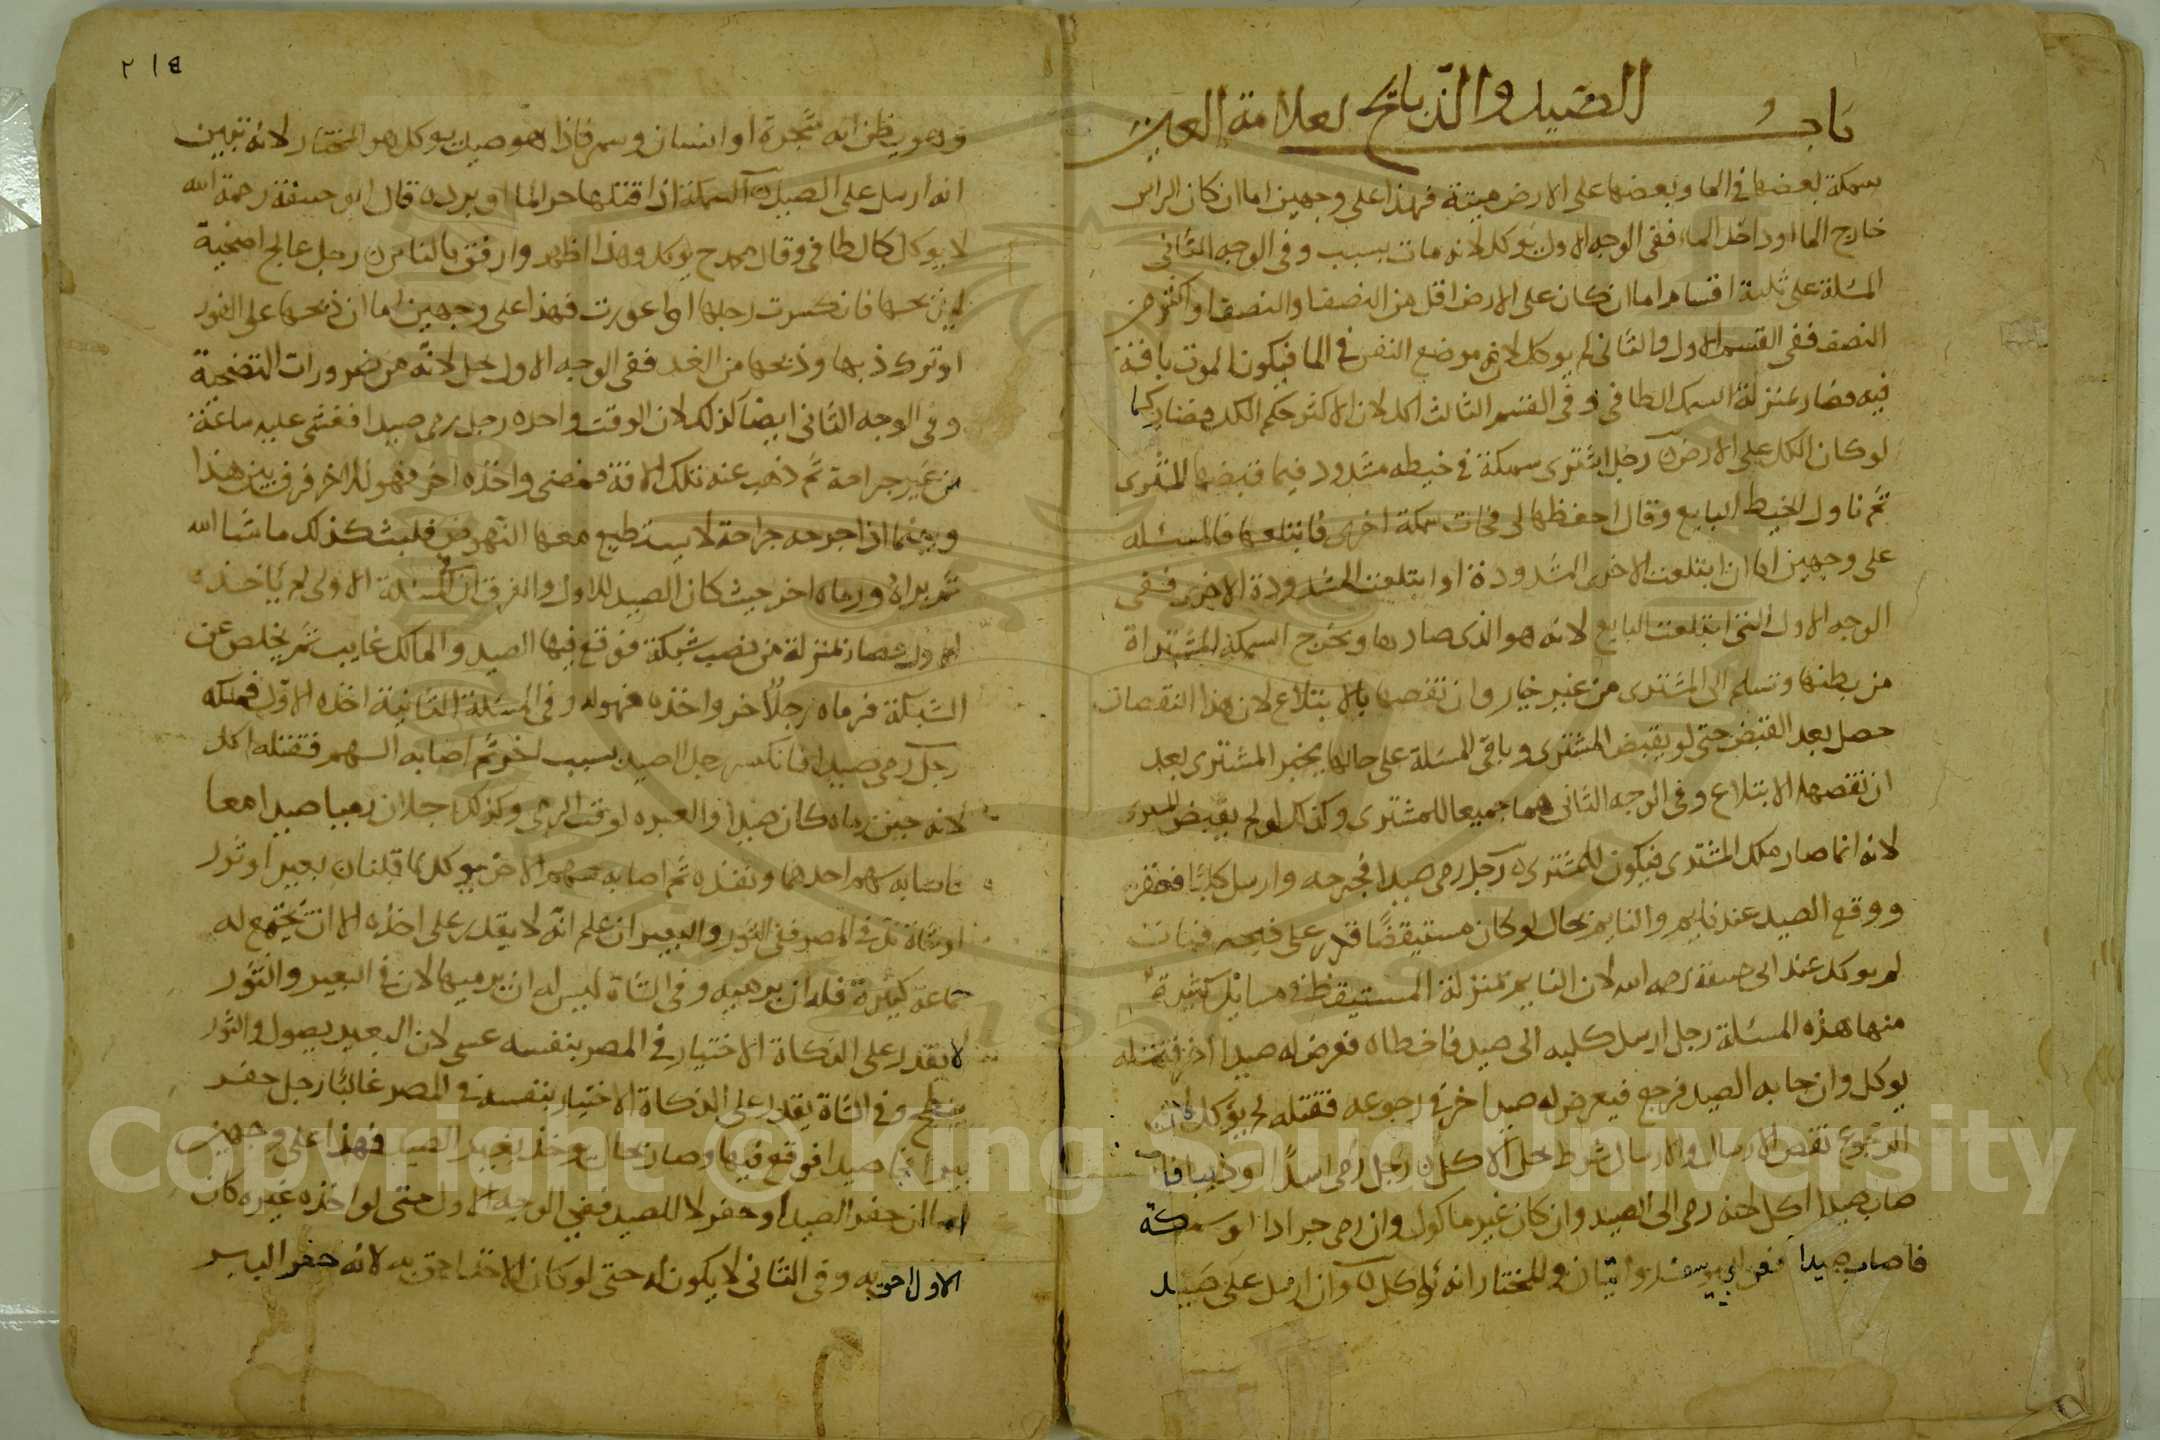 باب الصيد والذبائح لعلامة العين
سمكة بعضها في الما وبعضها على الارض ميتة فهذا على وجهين اما ان كان الراس
خارج الما او داخل الماء ففي الوجه الاول يوكل لانه مات بسبب وفي الوجه الثاني
المسئلة على ثلثة اقسام اما ان كان على الارض اقل من النصف او النصف او اكثر من
النصف ففي القسم الاول والثاني لم يوكل لان موضع النفس في الما فيكون الموت بافة
فيه فصار بمنزلة السمك الطافي وفي القسم الثالث اكل لان الاكثر حكم الكل فصار كما
لو كان الكل على الارض رجل اشترى سمكة في خيطه مشدود فيما قبضها المشترى
ثم ناول الخيط البايع وقال احفظها لي فجات سمكة اخرى فابتلعها فالمسئله
على وجهين اما ان ابتلعت الاخرى المشدودة او ابتلعت المشدودة الاخرى ففى
الوجه الاول التي ابتلعت البايع لانه هو الذي صادها ويخرج السمكة المشتراة
من بطنها وتسلم الى المشترى من غير خيار وان نقصها بالابتلاع لان هذا النقصان
حصل بعد القبض حتى لو يقبض المشترى وباقي المسئلة على حالها يخير المشترى بعد
ان نقصها الابتلاع وفي الوجه الثاني هما جميعا للمشترى وكذلك لو لم يقبض
لانه انما صار ملك المشترى فيكون للمشترى رجل رمى صيدا فجرحه وارسل كلبا فعقره
ووقع الصيد عند نايم والنايم بحال لو كان مستيقظا قدر على ذبحه فمات
لم يوكل عند ابي حنيفة رحمه الله لان النايم بمنزلة المستيقظ في مسايل كثيرة
منها هذه المسئلة رجل ارسل كلبه الى صيد فاخطاه فعرض له صيد اخر فقتله
يوكل وان جا به الصيد فرجع فيعرض له صيد اخر في رجوعه فقتله لم يوكل لان
الرجوع نقض الارسال والارسال شرط حل الاكل رجل رمى اسدا او ذيبا فا
صاب صيدا اكل لانه رمى الى الصيد وان كان غير ماكول وان رمى جرادا او سمكة
فاصاب صيدا فعن ابي يوسف روايتان والمختار انه يوكل وان ارسل على صيد
٢١٤
وهو يظن انه شجرة او انسان وسمى فاذا هو صيد يوكل هو المختار لانه تبين
انه ارسل على الصيد السمكة اذا قتلها حر الما او برده قال ابو حنيفة رحمة الله
لا يوكل كالطافي وقال محمد يوكل وهذا اظهر وارفق بالناس رجل عالج اضحية
ليذبحها فانكسرت رجلها او اعورت فهذا على وجهين اما ان ذبحها على الفور
او ترك ذبحها وذبحها من الغد ففي الوجه الاول حل لانه من ضرورات التضحية
وفي الوجه الثاني ايضا كذلك لان الوقت واحد رجل رمى صيدا فغشى عليه ساعة
من غير جراحة ثم ذهب عنه تلك الافة فمضى واخذه اخر فهو للاخر فرق بين هذا
وبينما اذا جرحه جراحة لا يستطيع معها النهوض فلبث كذلك ما شا الله
ثم برا ورماه اخر حيث كان الصيد للاول والفرق ان في المسئلة الاولى لم ياخذه
الاول فصار بمنزلة من نصب شبكة فوقع فيها الصيد والمالك غايب ثم يخلص عن
الشبكة فرماه رجل اخر واخذه فهو له وفي المسئلة الثانية اخذه الاول فملكه
رجل رمى صيدا فانكسر رجل الصيد بسبب اخر ثم اصابه السهم فقتله اكل
لانه حين رماه كان صيدا والعبرة لوقت الرمي وكذلك رجلان رميا صيدا معا
فاصابه سهم احدهما ونفذه ثم اصابه سهم الاخر يوكل لما قلنا بعير او ثور
او شاة ند في المصر ففي الثور والبعير ان علم انه لا يقدر على اخذه الا ان يجتمع له
جماعة كثيرة فله ان يرميه وفي الشاة ليس له ان يرميها لان في البعير والثور
لا يقدر على الذكاة الاختيار في المصر بنفسه عسى لان البعير يصول والثور
ينطح وفي الشاة يقدر على الذكاة الاختيار بنفسه في المصر غالبا رجل حفر
بيرا فجا صيد فوقع فيها وصار بحال يوخذ بغير الصيد فهذا على وجهين
اما ان حفر الصيد او حفر لا للصيد ففي الوجه الاول حتى لو اخذه غيره كان
الاول احق به وفي الثاني لا يكون له حتى لو كان الاخذ احق به لانه حفر البير
Copyright © King Saud University